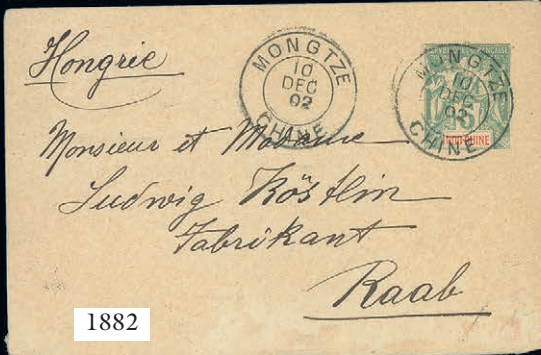 Hongrie
MONGTZE
10
DEC
02
CHINE
MONGTZE
10
DEC
02
CHINE
RÉPUBLIQUE FRANÇAISE
15
INDO-CHINE
Monsieur et Madame
Ludwig Köstlin
Fabrikant
Raab
1882